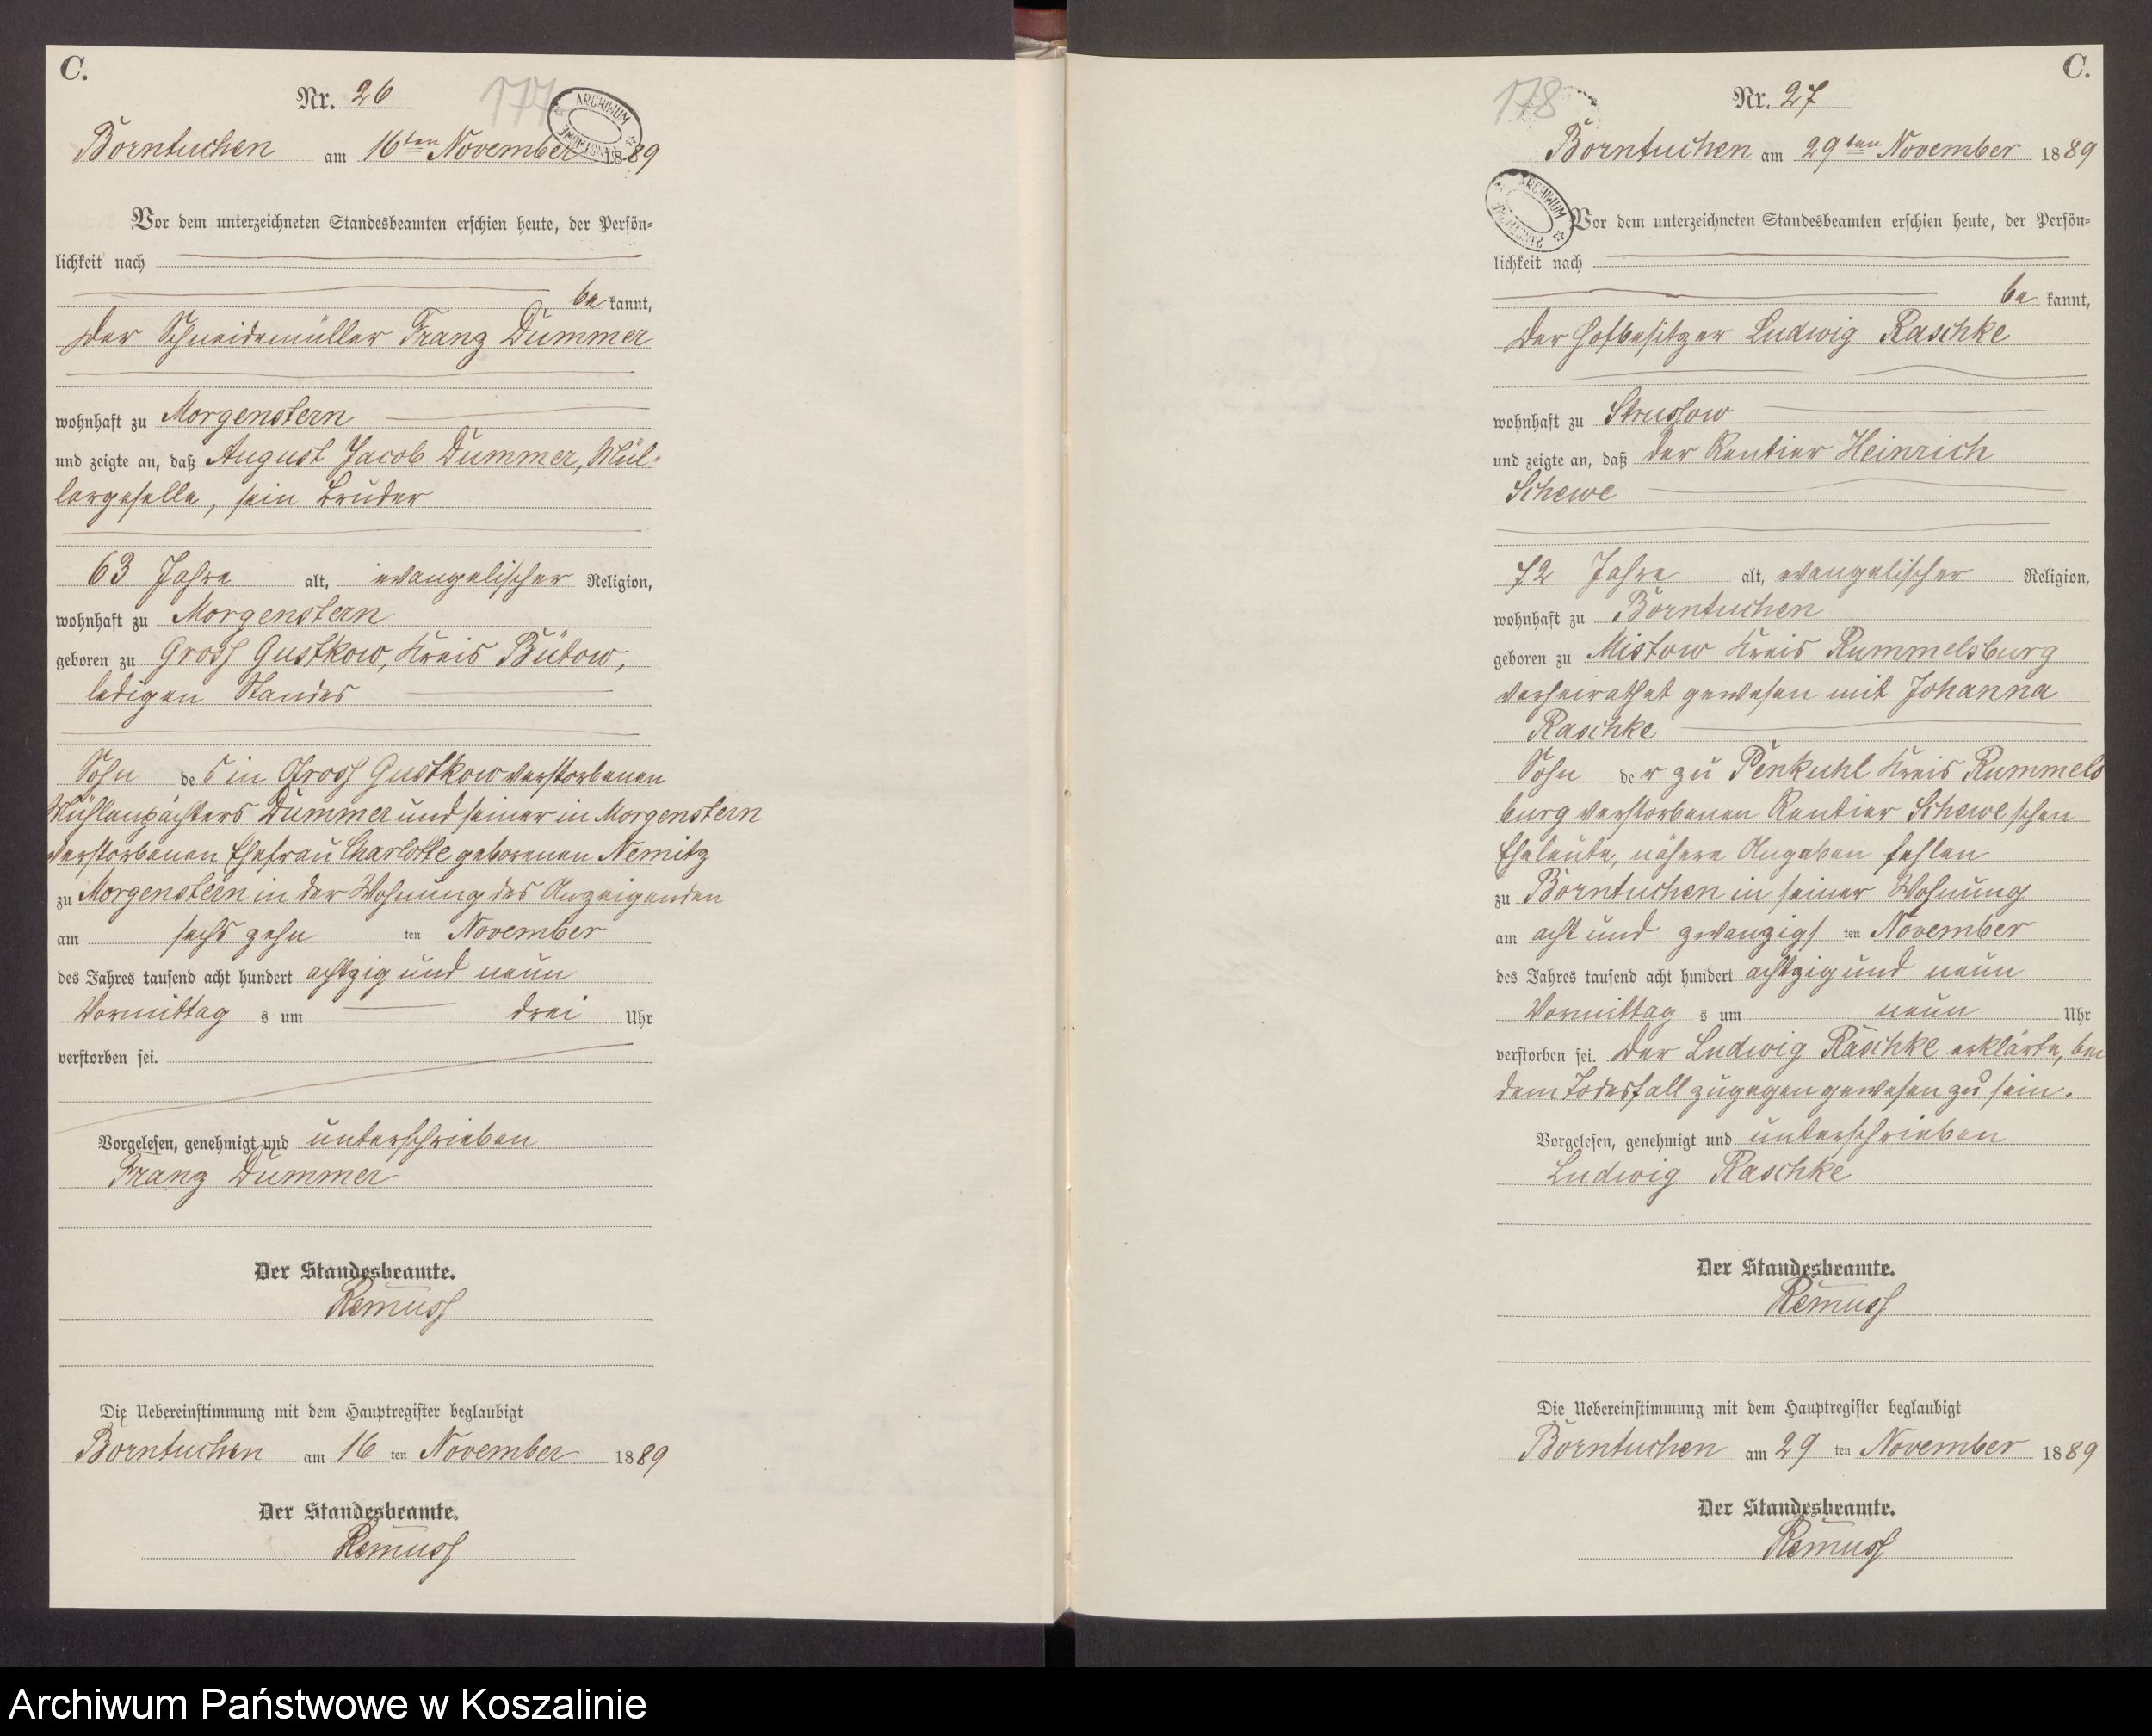 C.
Nr. 26
177
ARCHIWUM
Borntuchen am 16ten November 1889
Vor dem unterzeichneten Standesbeamten erschien heute, der Persön=
lichkeit nach
be kannt,
Der Schneidemüller Franz Dummer
wohnhaft zu Morgenstern
und zeigte an, daß August Jacob Dummer, Mül-
lergeselle, sein Bruder
63 Jahre alt, evangelischer Religion,
wohnhaft zu Morgenstern
geboren zu Gross Gustkow, Kreis Bütow,
ledigen Standes
Sohn des in Gross Gustkow verstorbenen
Mühlenpächters Dummer und seiner in Morgenstern
verstorbenen Ehefrau Charlotte geborenen Nemitz
zu Morgenstern in der Wohnung des Anzeigenden
am sechszehn ten November
des Jahres tausend acht hundert achtzig und neun
Vormittag s um drei Uhr
verstorben sei.
Vorgelesen, genehmigt und unterschrieben
Franz Dummer
Der Standesbeamte.
Remuss
Die Uebereinstimmung mit dem Hauptregister beglaubigt
Borntuchen am 16 ten November 1889
Der Standesbeamte.
Remuss
C.
178
Nr. 27
Borntuchen am 29ten November 1889
ARCHIWUM
Vor dem unterzeichneten Standesbeamten erschien heute, der Persön=
lichkeit nach
be kannt,
Der Hofbesitzer Ludwig Raschke
wohnhaft zu Strussow
und zeigte an, daß der Rentier Heinrich
Schewe
72 Jahre alt, evangelischer Religion,
wohnhaft zu Borntuchen
geboren zu Mistow Kreis Rummelsburg
verheirathet gewesen mit Johanna
Raschke
Sohn der zu Penkuhl Kreis Rummels
burg verstorbenen Rentier Schewe schen
Eheleute, nähere Angaben fehlen
zu Borntuchen in seiner Wohnung
am acht und zwanzigs ten November
des Jahres tausend acht hundert achtzig und neun
Vormittag s um neun Uhr
verstorben sei. Der Ludwig Raschke erklärte, bei
dem Todesfall zugegen gewesen zu sein.
Vorgelesen, genehmigt und unterschrieben
Ludwig Raschke
Der Standesbeamte.
Remuss
Die Uebereinstimmung mit dem Hauptregister beglaubigt
Borntuchen am 29 ten November 1889
Der Standesbeamte.
Remuss
Archiwum Państwowe w Koszalinie